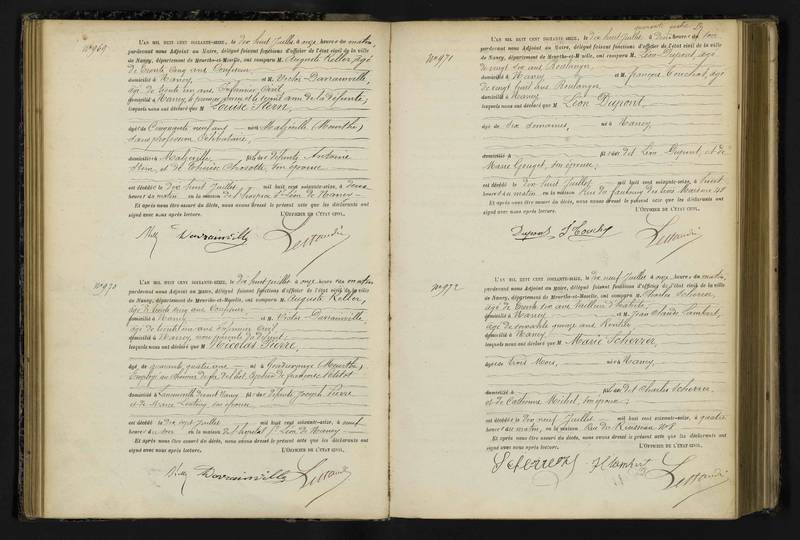 N° 969
L'AN MIL HUIT CENT SOIXANTE-SEIZE, le dix huit Juillet, à onze heures du matin,
pardevant nous Adjoint au Maire, délégué faisant fonctions d'officier de l'état civil de la ville
de Nancy, département de Meurthe-et-Moselle, ont comparu M. Auguste Keller, âgé
de trente cinq ans
domicilié à Nancy et M. Victor Darrainville,
âgé de trente un ans Infirmier Civil
domicilié à Nancy, le premier et le second ami de la défunte,
lesquels nous ont déclaré que M Louise Stern,
âgé de Cinquante neuf ans née à Malzéville (Meurthe)
sans profession Célibataire,
domiciliée à Malzéville, fille des défunts Antoine
Stern, et de son épouse
est décédée le dix huit Juillet mil huit cent soixante-seize, à deux
heures du matin en la maison de l'hospice St Léon de Nancy
Et après nous être assuré du décès, nous avons dressé le présent acte que les déclarants ont
signé avec nous après lecture. L'OFFICIER DE L'ÉTAT CIVIL,
Darrainville
N° 970
L'AN MIL HUIT CENT SOIXANTE-SEIZE, le dix huit juillet à onze heures du matin
pardevant nous Adjoint au Maire, délégué faisant fonctions d'officier de l'état civil de la ville
de Nancy, département de Meurthe-et-Moselle, ont comparu M. Auguste Keller,
âgé de trente cinq ans
domicilié à Nancy et M. Victor Darrainville,
âgé de trente un ans Infirmier Civil
domicilié à Nancy, non parents du défunt
lesquels nous ont déclaré que M Nicolas Pierre,
âgé de quarante quatre ans né à (Meurthe)
Employé au chemin de fer de l'Est, époux de
domicilié à fils des défunts Joseph Pierre
et de Marie son épouse
est décédé le dix sept Juillet mil huit cent soixante-seize, à neuf
heures du soir en la maison de l'hospice St Léon de Nancy
Et après nous être assuré du décès, nous avons dressé le présent acte que les déclarants ont
signé avec nous après lecture. L'OFFICIER DE L'ÉTAT CIVIL,
Darrainville
N° 971
L'AN MIL HUIT CENT SOIXANTE-SEIZE, le dix huit Juillet à deux heures du soir
pardevant nous Adjoint au Maire, délégué faisant fonctions d'officier de l'état civil de la ville
de Nancy, département de Meurthe-et-Moselle, ont comparu M. Léon Dupont, âgé
de vingt six ans Boulanger
domicilié à Nancy et M. François, âgé
de vingt huit ans Boulanger
domicilié à Nancy
lesquels nous ont déclaré que M Léon Dupont,
âgé de dix semaines, né à Nancy,
domicilié à fils des dit Léon Dupont, et de
Marie Gouget, son épouse;
est décédé le dix huit Juillet mil huit cent soixante-seize, à huit
heures du matin en la maison Rue du faubourg des trois Maisons 48
Et après nous être assuré du décès, nous avons dressé le présent acte que les déclarants ont
signé avec nous après lecture. L'OFFICIER DE L'ÉTAT CIVIL,
Dupont
N° 972
L'AN MIL HUIT CENT SOIXANTE-SEIZE, le dix neuf Juillet à onze heures du matin,
pardevant nous Adjoint au Maire, délégué faisant fonctions d'officier de l'état civil de la ville
de Nancy, département de Meurthe-et-Moselle, ont comparu M. Charles Scherrer,
âgé de trente six ans Tailleur d'habits
domicilié à Nancy et M. Jean Claude Lambert,
âgé de soixante quinze ans Rentier
domicilié à Nancy
lesquels nous ont déclaré que M Marie Scherrer,
âgée de trois Mois, née à Nancy,
domicilié à fille des dit Charles Scherrer
et de Catherine Michel, son épouse;
est décédée le dix neuf Juillet mil huit cent soixante-seize, à quatre
heures du matin, en la maison Rue du Ruisseau N° 8
Et après nous être assuré du décès, nous avons dressé le présent acte que les déclarants ont
signé avec nous après lecture. L'OFFICIER DE L'ÉTAT CIVIL,
Scherrer Lambert